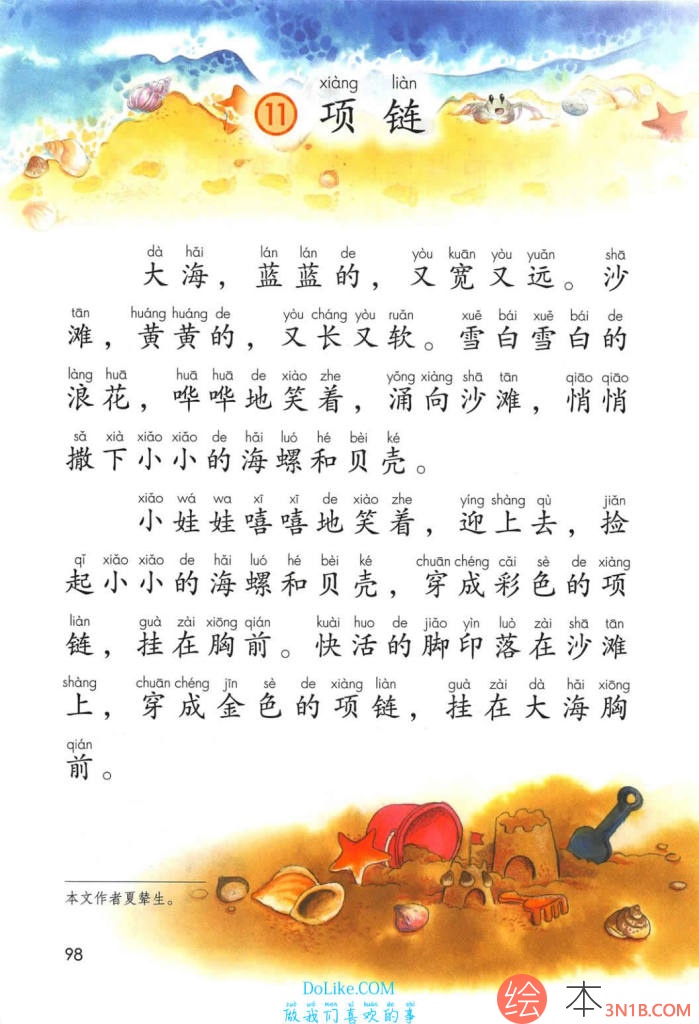 xiàng liàn
11 项链
dà hǎi lán lán de yòu kuān yòu yuǎn shā
大海，蓝蓝的，又宽又远。沙
tān huáng huáng de yòu cháng yòu ruǎn xuě bái xuě bái de
滩，黄黄的，又长又软。雪白雪白的
làng huā huā huā de xiào zhe yǒng xiàng shā tān qiāo qiāo
浪花，哗哗地笑着，涌向沙滩，悄悄
sǎ xià xiǎo xiǎo de hǎi luó hé bèi ké
撒下小小的海螺和贝壳。
xiǎo wá wa xī xī de xiào zhe yíng shàng qù jiǎn
小娃娃嘻嘻地笑着，迎上去，捡
qǐ xiǎo xiǎo de hǎi luó hé bèi ké chuān chéng cǎi sè de xiàng
起小小的海螺和贝壳，穿成彩色的项
liàn guà zài xiōng qián kuài huo de jiǎo yìn luò zài shā tān
链，挂在胸前。快活的脚印落在沙滩
shàng chuān chéng jīn sè de xiàng liàn guà zài dà hǎi xiōng
上，穿成金色的项链，挂在大海胸
qián
前。
本文作者夏辇生。
98
DoLike.COM
zuò wǒ men xǐ huān de shì
做我们喜欢的事
绘本 3N1B.COM